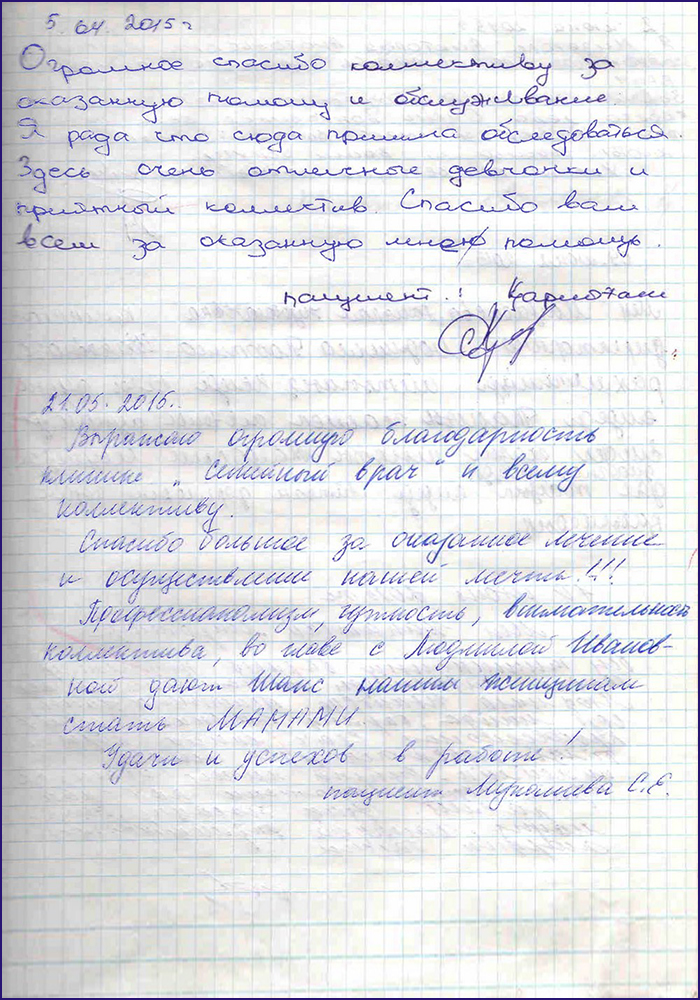 5. 04. 2015 г
Огромное спасибо коллективу за
оказанную помощь и обслуживание.
Я рада что сюда пришла обследоваться.
Здесь очень отличные девчонки и
приятный коллектив. Спасибо вам
всем за оказанную мне помощь.
пациент :
21.05. 2015.
Выражаю огромную благодарность
клинике „Семейный врач" и всему
коллективу.
Спасибо большое за оказанное лечение
и осуществление нашей мечты!!!
Профессионализм, чуткость, внимательность
коллектива, во главе с Людмилой Иванов-
ной дают шанс нашим женщинам
стать МАМАМИ
Удачи и успехов в работе!
пациент С.Е.